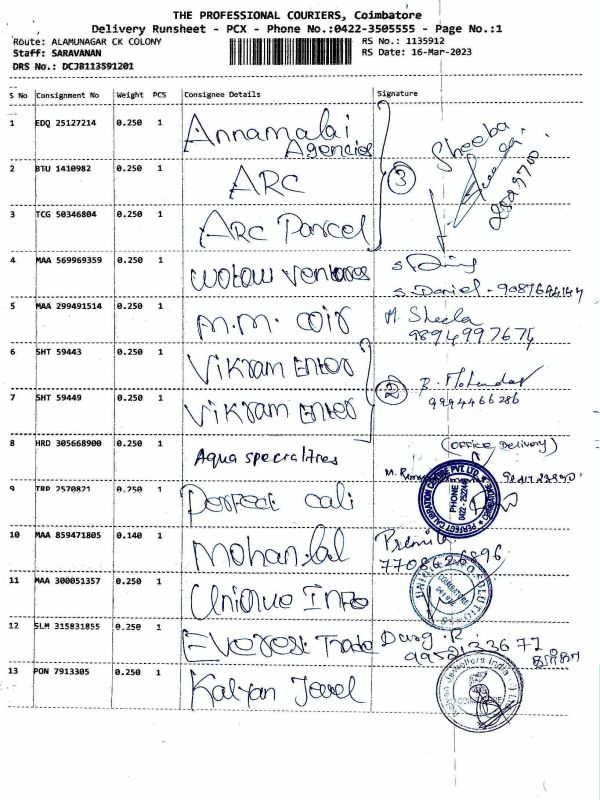 THE PROFESSIONAL COURIERS, Coimbatore
Delivery Runsheet - PCX - Phone No.:0422-3505555 - Page No.:1
Route: ALAMUNAGAR CK COLONY
RS No.: 1135912
Staff: SARAVANAN
RS Date: 16-Mar-2023
DRS No.: DCJB113591201
S No Consignment No Weight PCS Consignee Details Signature
1 EDQ 25127214 0.250 1 Annamalai Agencies Sheeba
2 BTU 1410982 0.250 1 ARC 3
3 TCG 50346804 0.250 1 ARC Parcel
4 MAA 569969359 0.250 1 wotow ventures
S. Daniel - 9087644147
5 MAA 299491514 0.250 1 M.M. coir M. Sheela
9894997674
6 SHT 59443 0.250 1 Vikram Enter
7 SHT 59449 0.250 1 Vikram Enter 2
9994466286
8 HRD 305668900 0.250 1 Aqua specialities (OFFICE Delivery)
9 TRP 2570821 0.250 1 perfect cali
PERFECT CALIBRATION CENTRE PVT. LTD.
PHONE
10 MAA 859471805 0.140 1 Mohan lal Premila
7708626896
11 MAA 300051357 0.250 1 Unique Info
COIMBATORE
12 SLM 315831855 0.250 1 Everest Trade Durg.R
9952133677
13 PON 7913305 0.250 1 Kalyan Jewel
Kalyan Jewellers India